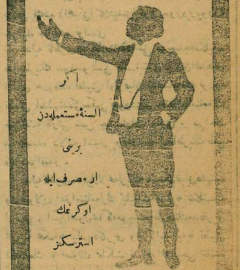 اكر
السنهٔ مستعمله‌دن
برینی
از مصرف ایله
اوكرنمك
استرسكز